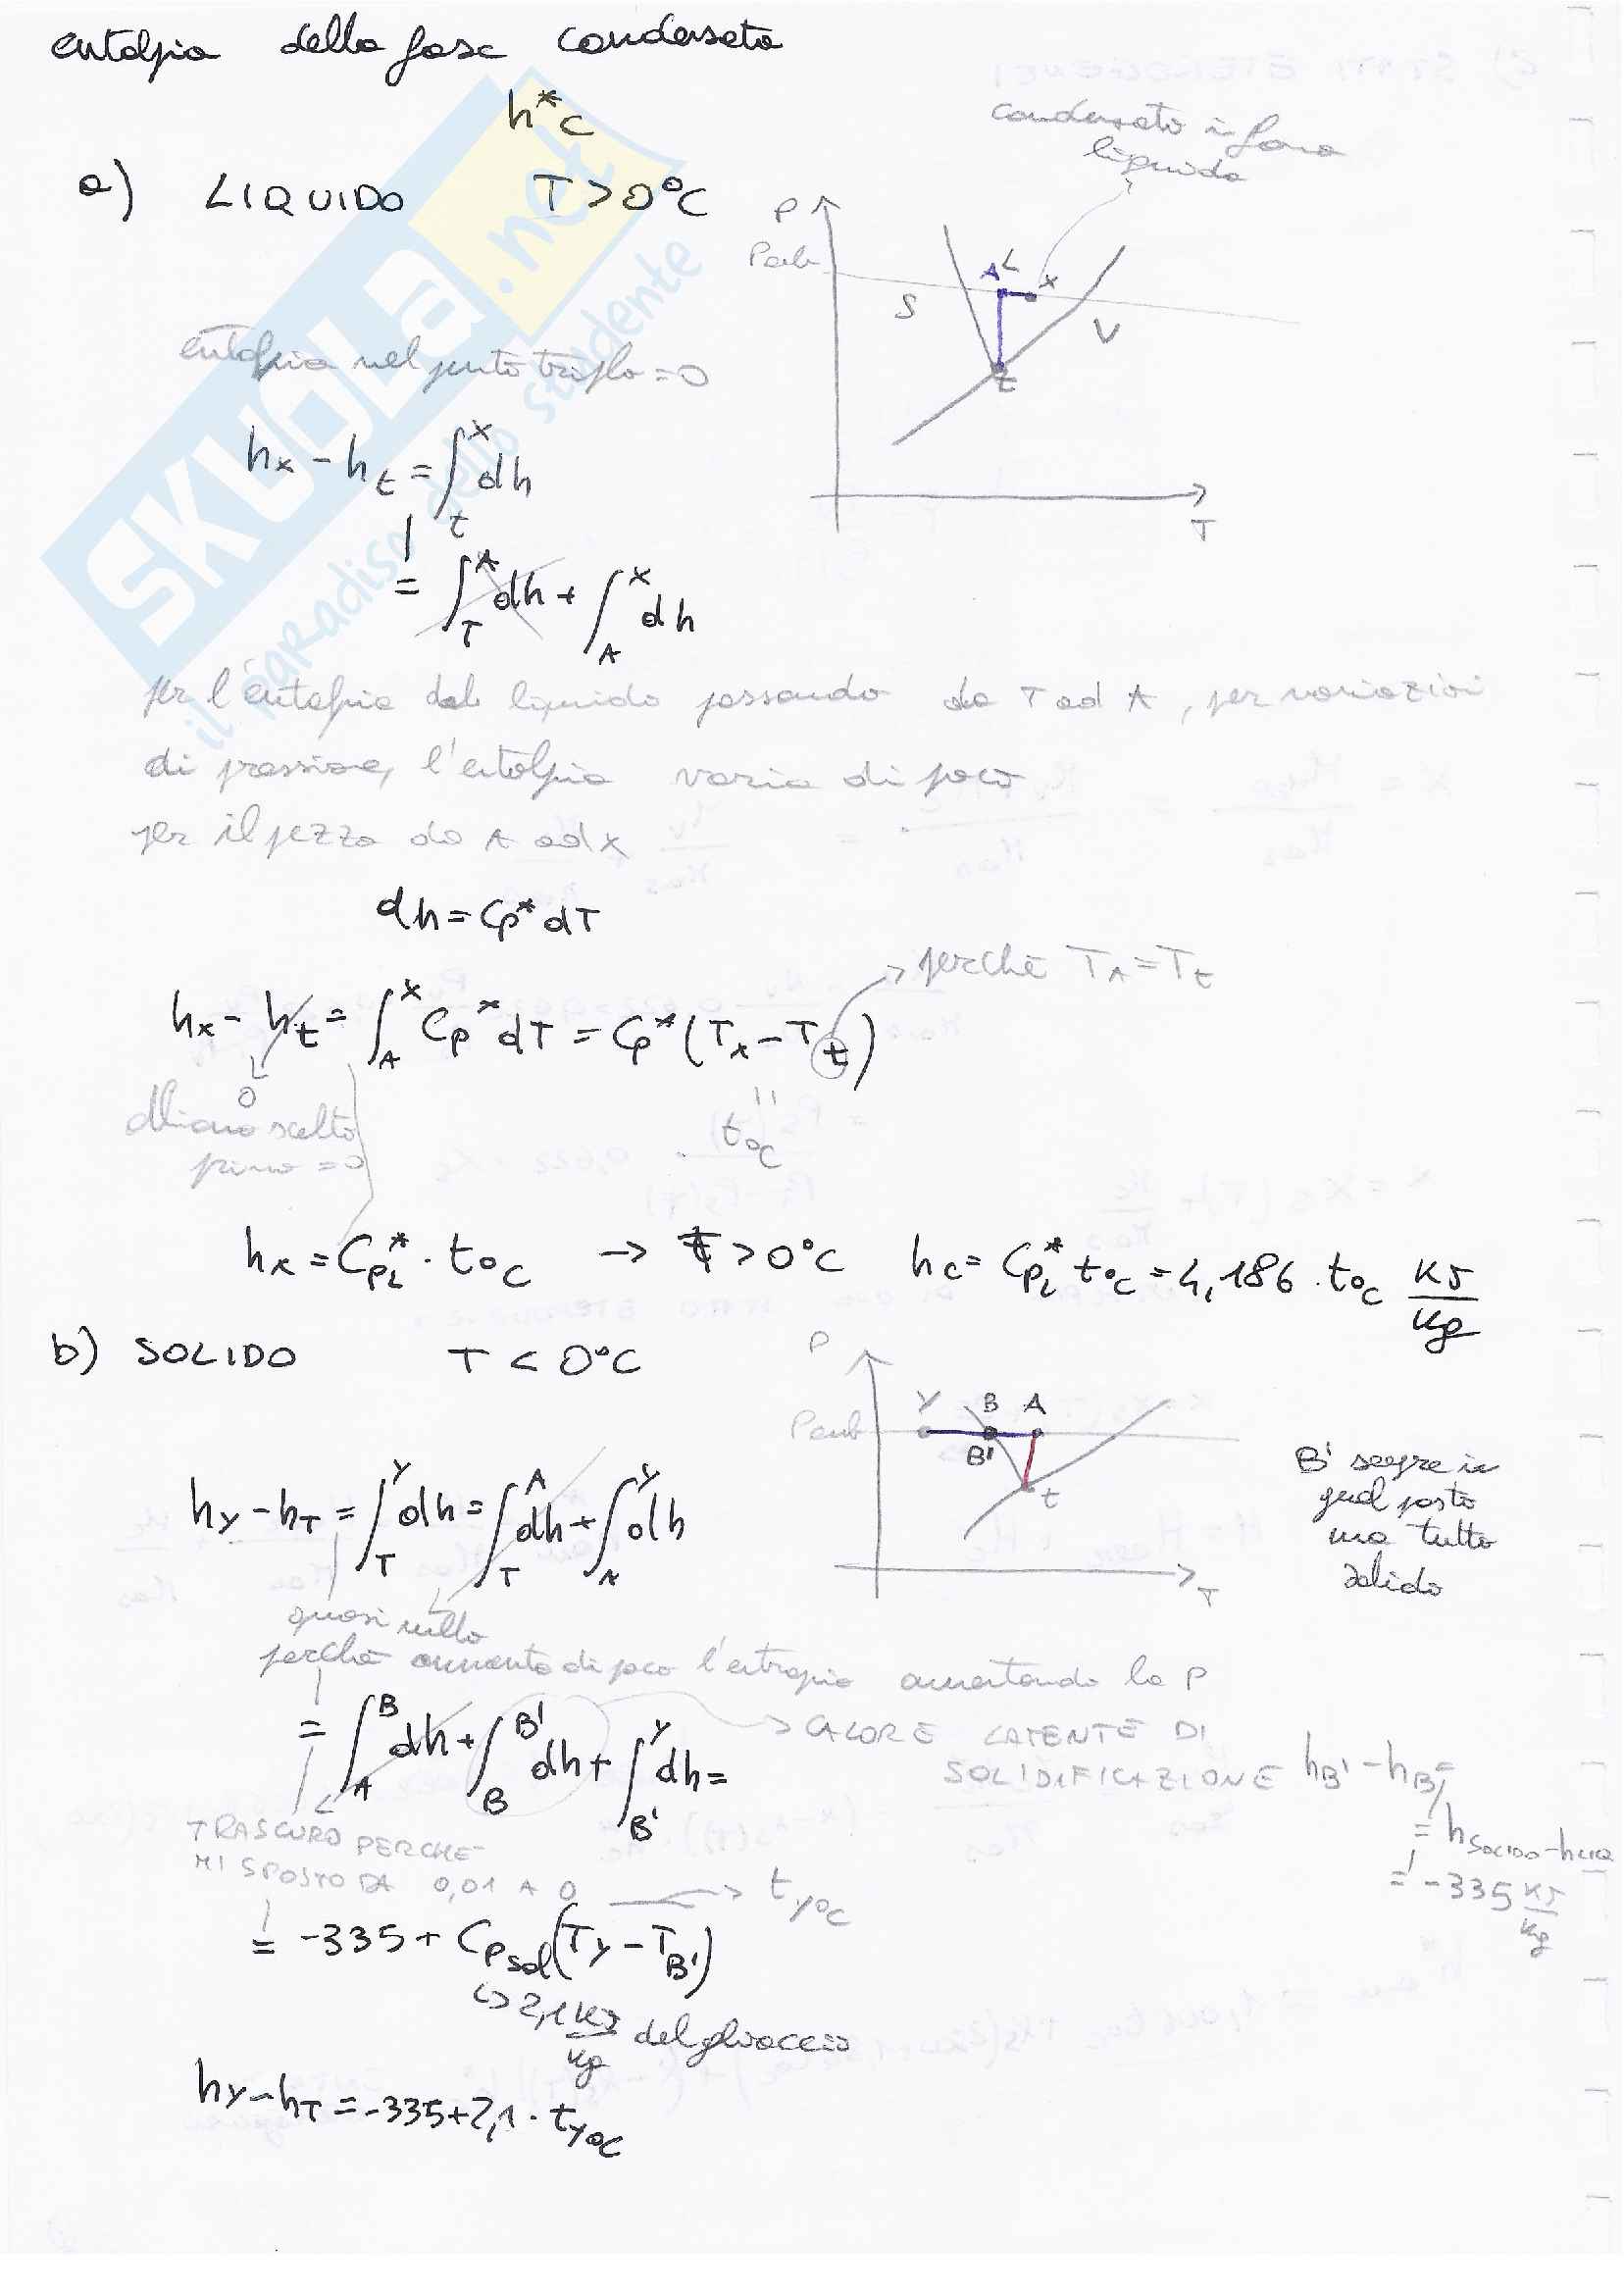 entalpia della fase condensata
h*c
condensato in fase
liquida
a) LIQUIDO T>0°C
P
Pamb
A L x
S
V
t
T
entalpia nel punto triplo = 0
hx - ht = ∫ₜˣ dh
= ∫_T^A dh + ∫_A^x dh
per l'entalpia del liquido passando da T ad A, per variazioni
di pressione, l'entalpia varia di poco
per il pezzo da A ad x
dh = Cp* dT
perchè T_A = T_t
hx - ht = ∫_A^x Cp* dT = Cp* (Tx - Tt)
0
abbiamo scelto
primo = 0
t°C
hx = Cp_L* · t°C → T > 0°C hc = Cp_L* t°C = 4,186 · t°C KJ/Kg
b) SOLIDO T < 0°C
P
Y B A
Pamb
B'
t
T
B' sempre in
quel posto
ma tutto
solido
hY - hT = ∫_T^Y dh = ∫_T^A dh + ∫_A^Y dh
quasi nullo
perchè aumenta di poco l'entropia aumentando la P
= ∫_A^B dh + ∫_B^B' dh + ∫_B'^Y dh =
→ CALORE LATENTE DI
SOLIDIFICAZIONE hB' - hB =
= hSOLIDO - hLIQ
= -335 KJ/Kg
TRASCURO PERCHE'
MI SPOSTO DA 0,01 A 0
→ tY°C
= -335 + Cp sol (TY - TB')
↳ 2,1 KJ/Kg del ghiaccio
hY - hT = -335 + 2,1 · tY°C
SKUOLA.net
il paradiso dello studente